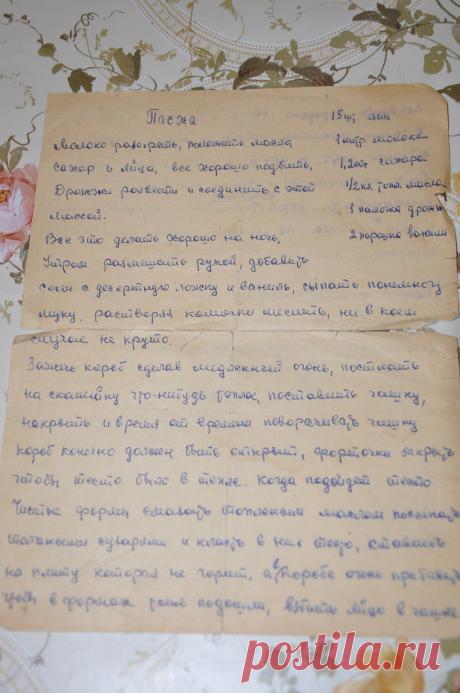 Пасха
15 шт. яиц
Молоко разогреть, положить масла
1 литр молока
сахар и яйца, все хорошо подбить,
1,200 сахара
Дрожжи развести и соединить с этой
1/2 кл. топл. масла
массой.
1 палочка дрожж
Все это делать хорошо на ночь,
2 порошка ванили
Утром размешать рукой, добавить
соли с десертную ложку и ваниль, сыпать понемногу
муку, растворяя комочки месить, ни в коем
случае не круто.
Зажечь короб сделав медленный огонь, постлать
на скамейку что-нибудь теплое, поставить чашку,
накрыть и время от времени поворачивать чашку
короб конечно должен быть открыт, форточки закрыть
чтобы тесто было в тепле. Когда подойдет тесто
чистые формы смазать топленым маслом посыпать
толчеными сухарями и класть в них тесто, ставить
на плиту которая не горит. а в коробе огонь
в формах тоже подошли, взбить яйцо в чашке
postila.ru